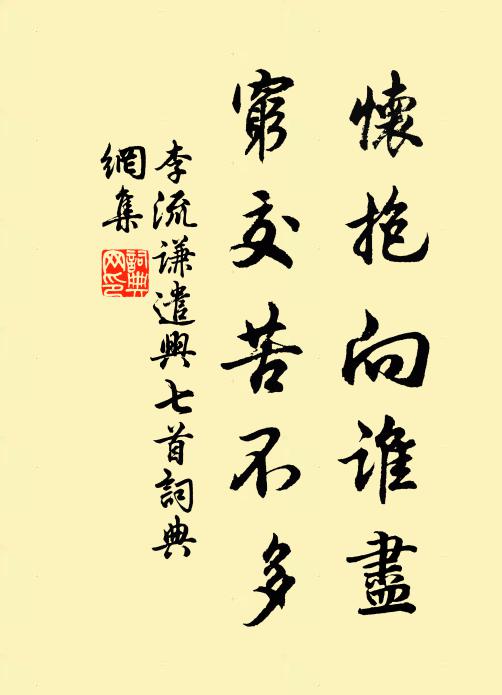 懷抱向誰盡
窮交苦不多
李流謙遣興七首詞典
網集
詞典
网印